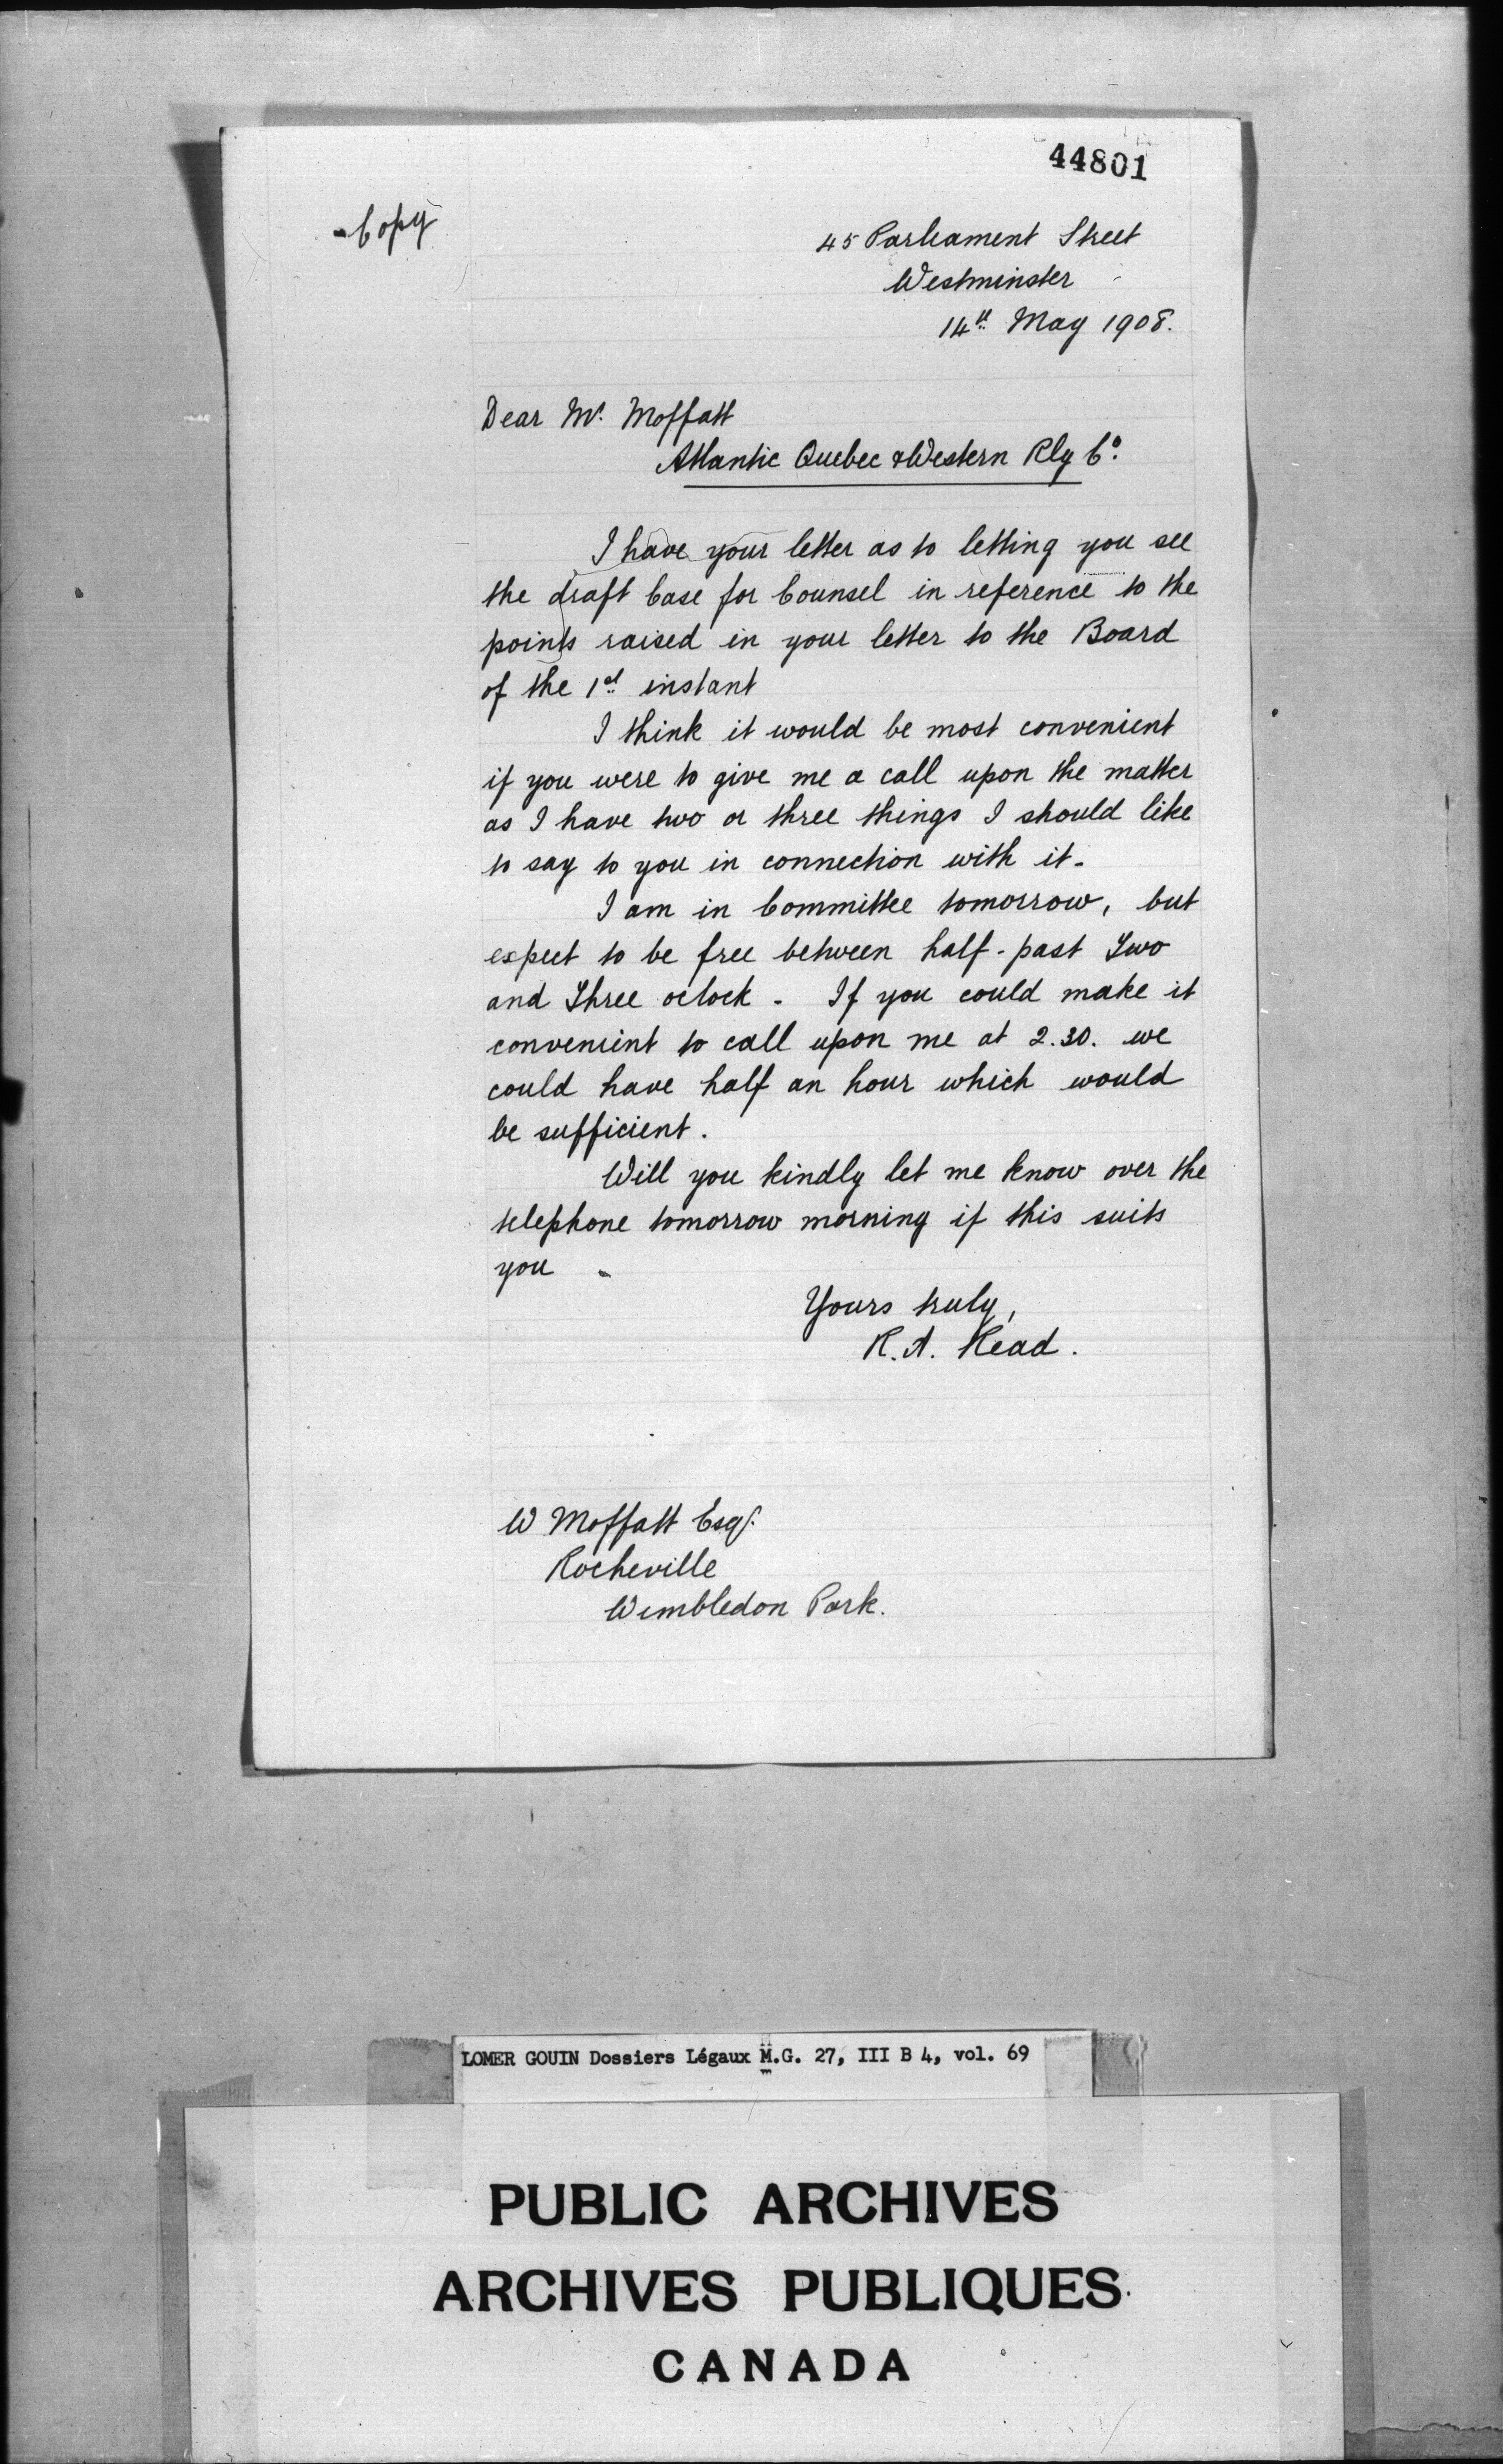 44801
Copy
45 Parliament Street
Westminster
14th May 1908.
Dear Mr. Moffatt
Atlantic Quebec & Western Rly Co.
I have your letter as to letting you see
the draft Case for Counsel in reference to the
points raised in your letter to the Board
of the 1st instant
I think it would be most convenient
if you were to give me a call upon the matter
as I have two or three things I should like
to say to you in connection with it.
I am in Committee tomorrow, but
expect to be free between half-past Two
and Three oclock. If you could make it
convenient to call upon me at 2.30. we
could have half an hour which would
be sufficient.
Will you kindly let me know over the
telephone tomorrow morning if this suits
you
Yours truly,
R.A. Read.
W Moffatt Esqr.
Rocheville
Wimbledon Park.
LOMER GOUIN Dossiers Légaux M.G. 27, III B 4, vol. 69
PUBLIC ARCHIVES
ARCHIVES PUBLIQUES
CANADA